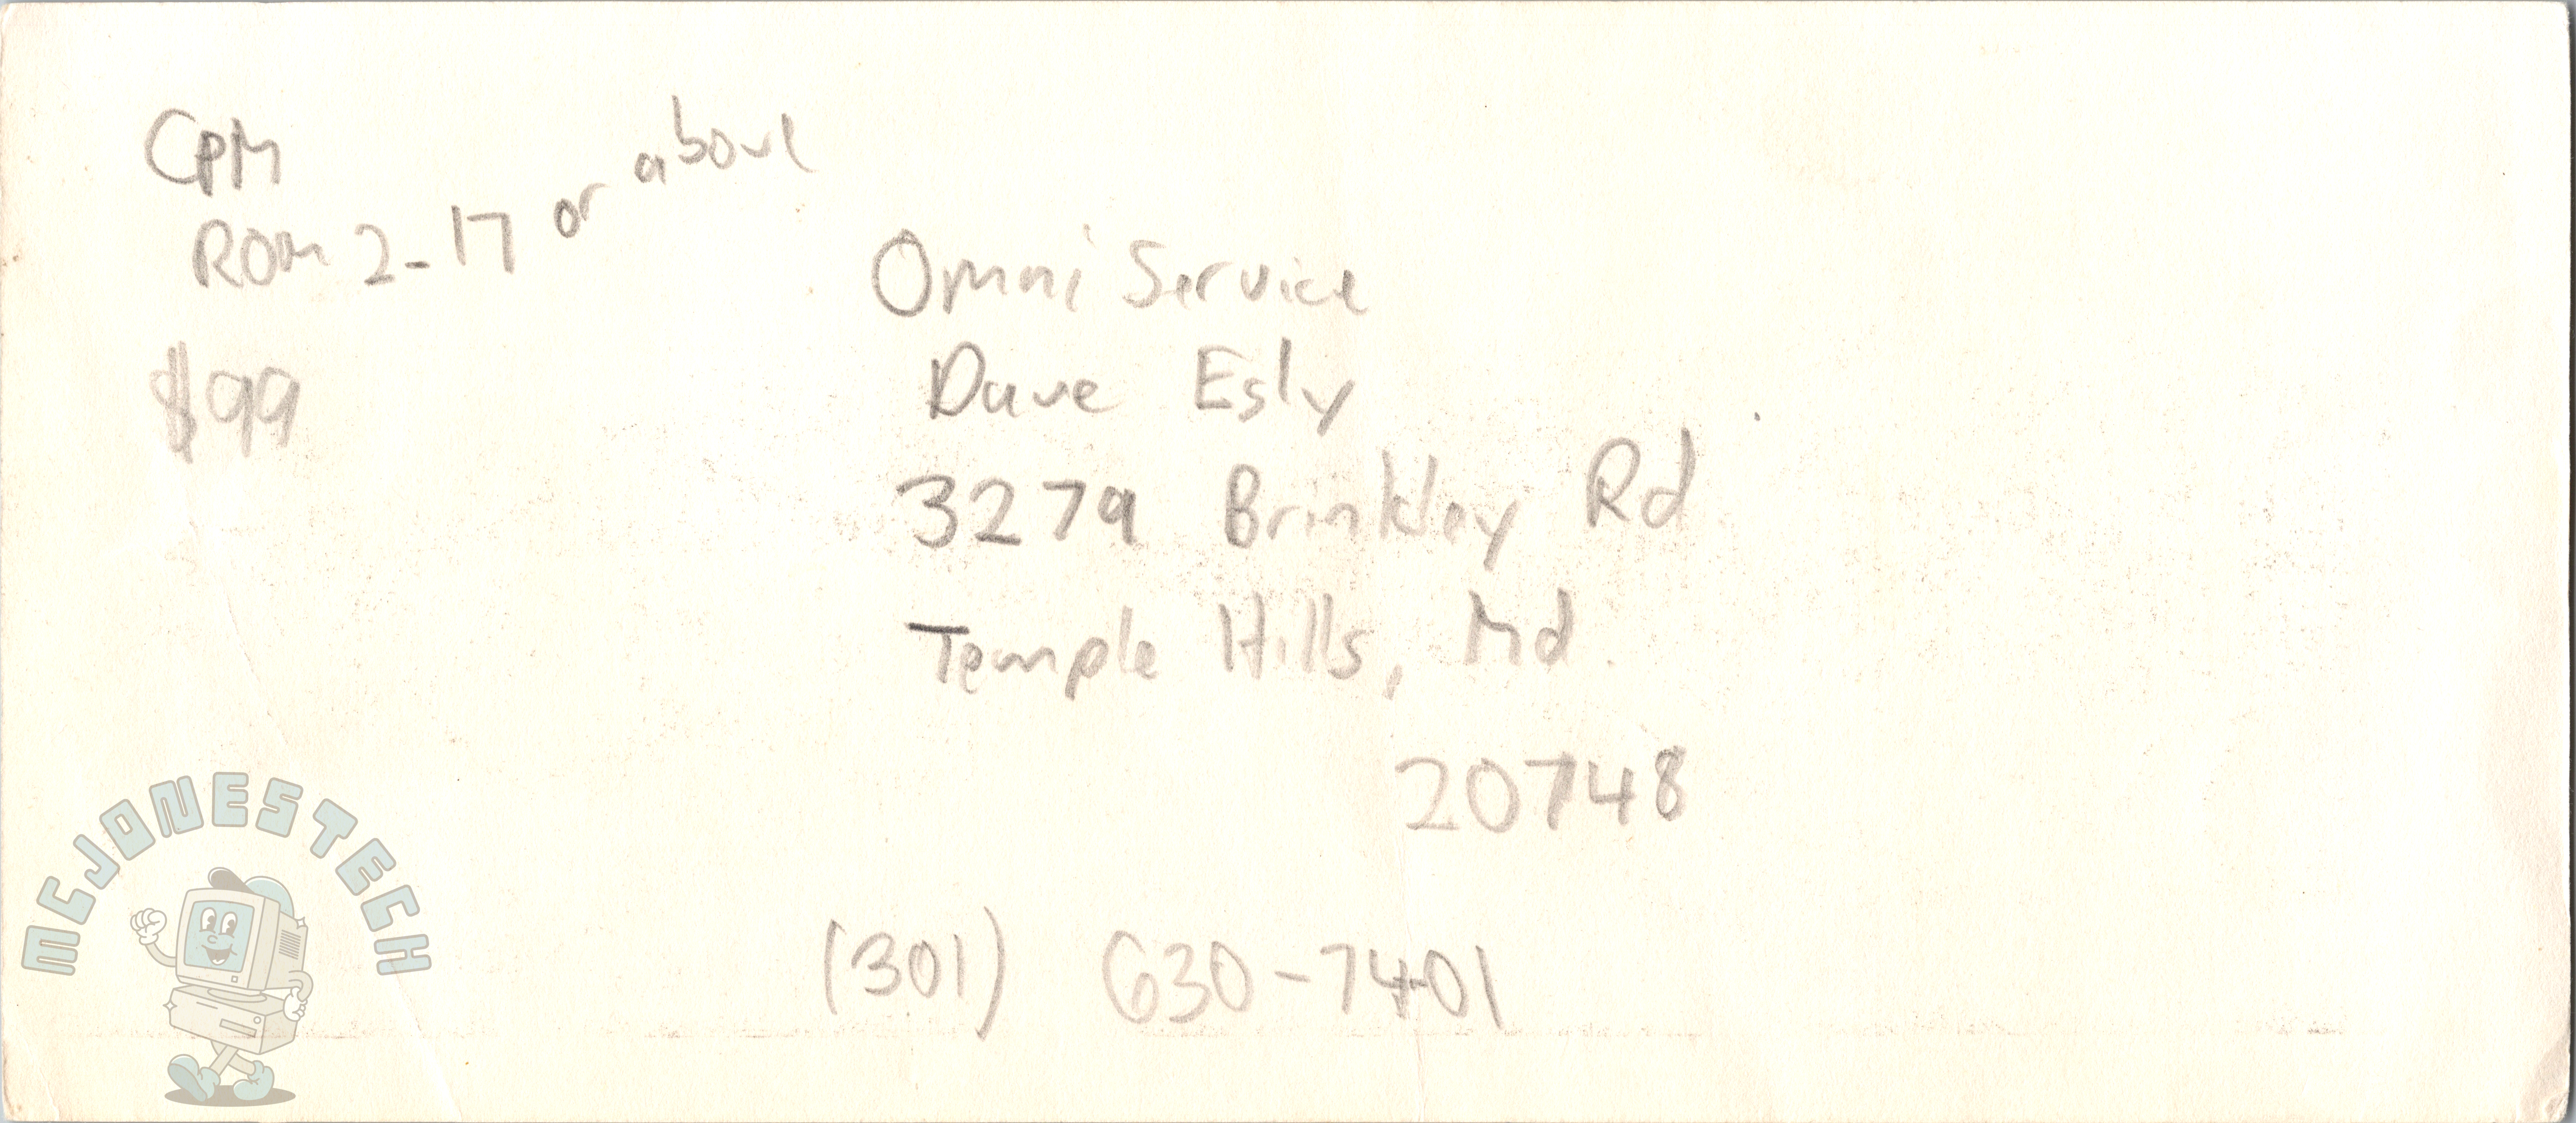 CPM
ROM 2-17 or above
$99
Omni Service
Dave Esly
3279 Brinkley Rd
Temple Hills, Md.
20748
(301) 630-7401
MCJONESTECH